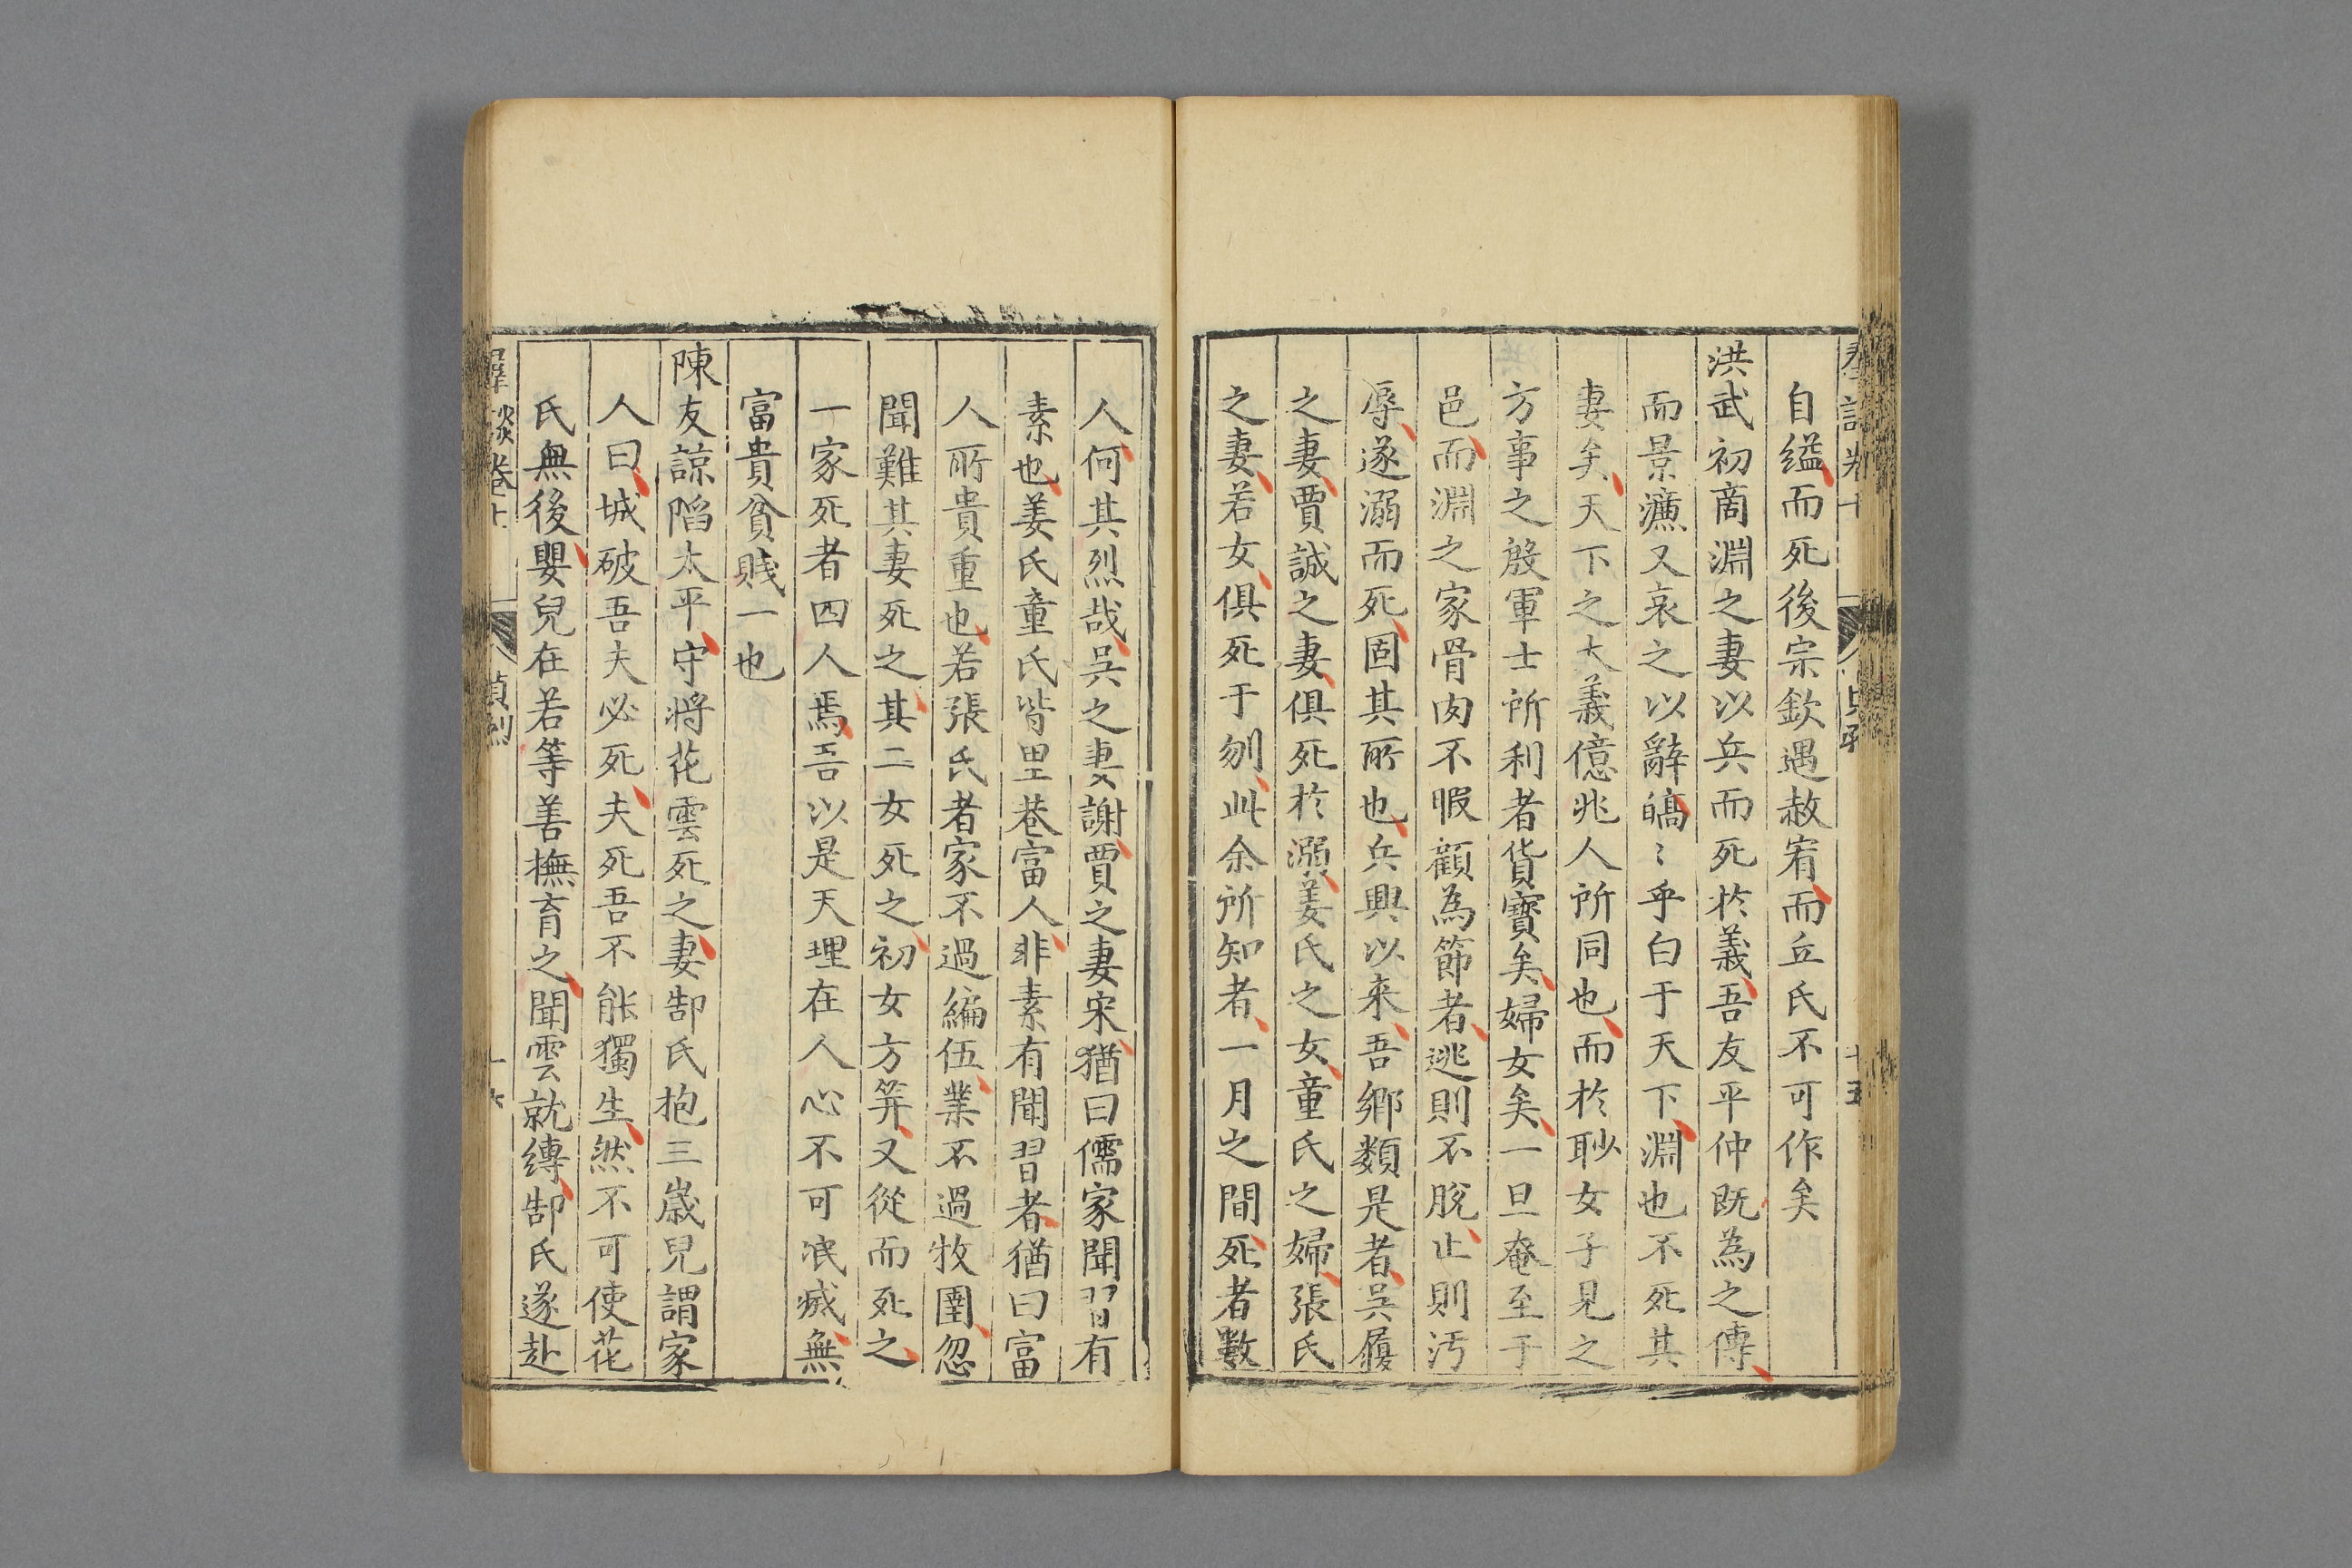 自縊而死後宗欽遇赦宥而丘氏不可作矣
洪武初商淵之妻以兵而死於義吾友平仲既為之傳
而景濂又哀之以辭皜〻乎白于天下淵也不死其
妻矣天下之大義億兆人所同也而於眇女子見之
方事之殷軍士所利者貨寶矣婦女矣一旦奄至于
邑而淵之家骨肉不暇顧為節者逃則不脫止則汚
辱遂溺而死固其所也兵興以来吾鄉類是者吳履
之妻賈誠之妻俱死於溺姜氏之女童氏之婦張氏
之妻若女俱死于刎此余所知者一月之間死者數
人何其烈哉吳之妻謝賈之妻宋猶曰儒家聞習有
素也姜氏童氏皆里巷富人非素有聞習者猶曰富
人所貴重也若張氏者家不過編伍業不過牧圉忽
聞難其妻死之其二女死之初女方笄又從而死之
一家死者四人焉吾以是天理在人心不可泯滅無
富貴貧賤一也
陳友諒陷太平守將花雲死之妻郜氏抱三歲兒謂家
人曰城破吾夫必死夫死吾不能獨生然不可使花
氏無後嬰兒在若等善撫育之聞雲就縛郜氏遂赴
羣談卷十 貞烈